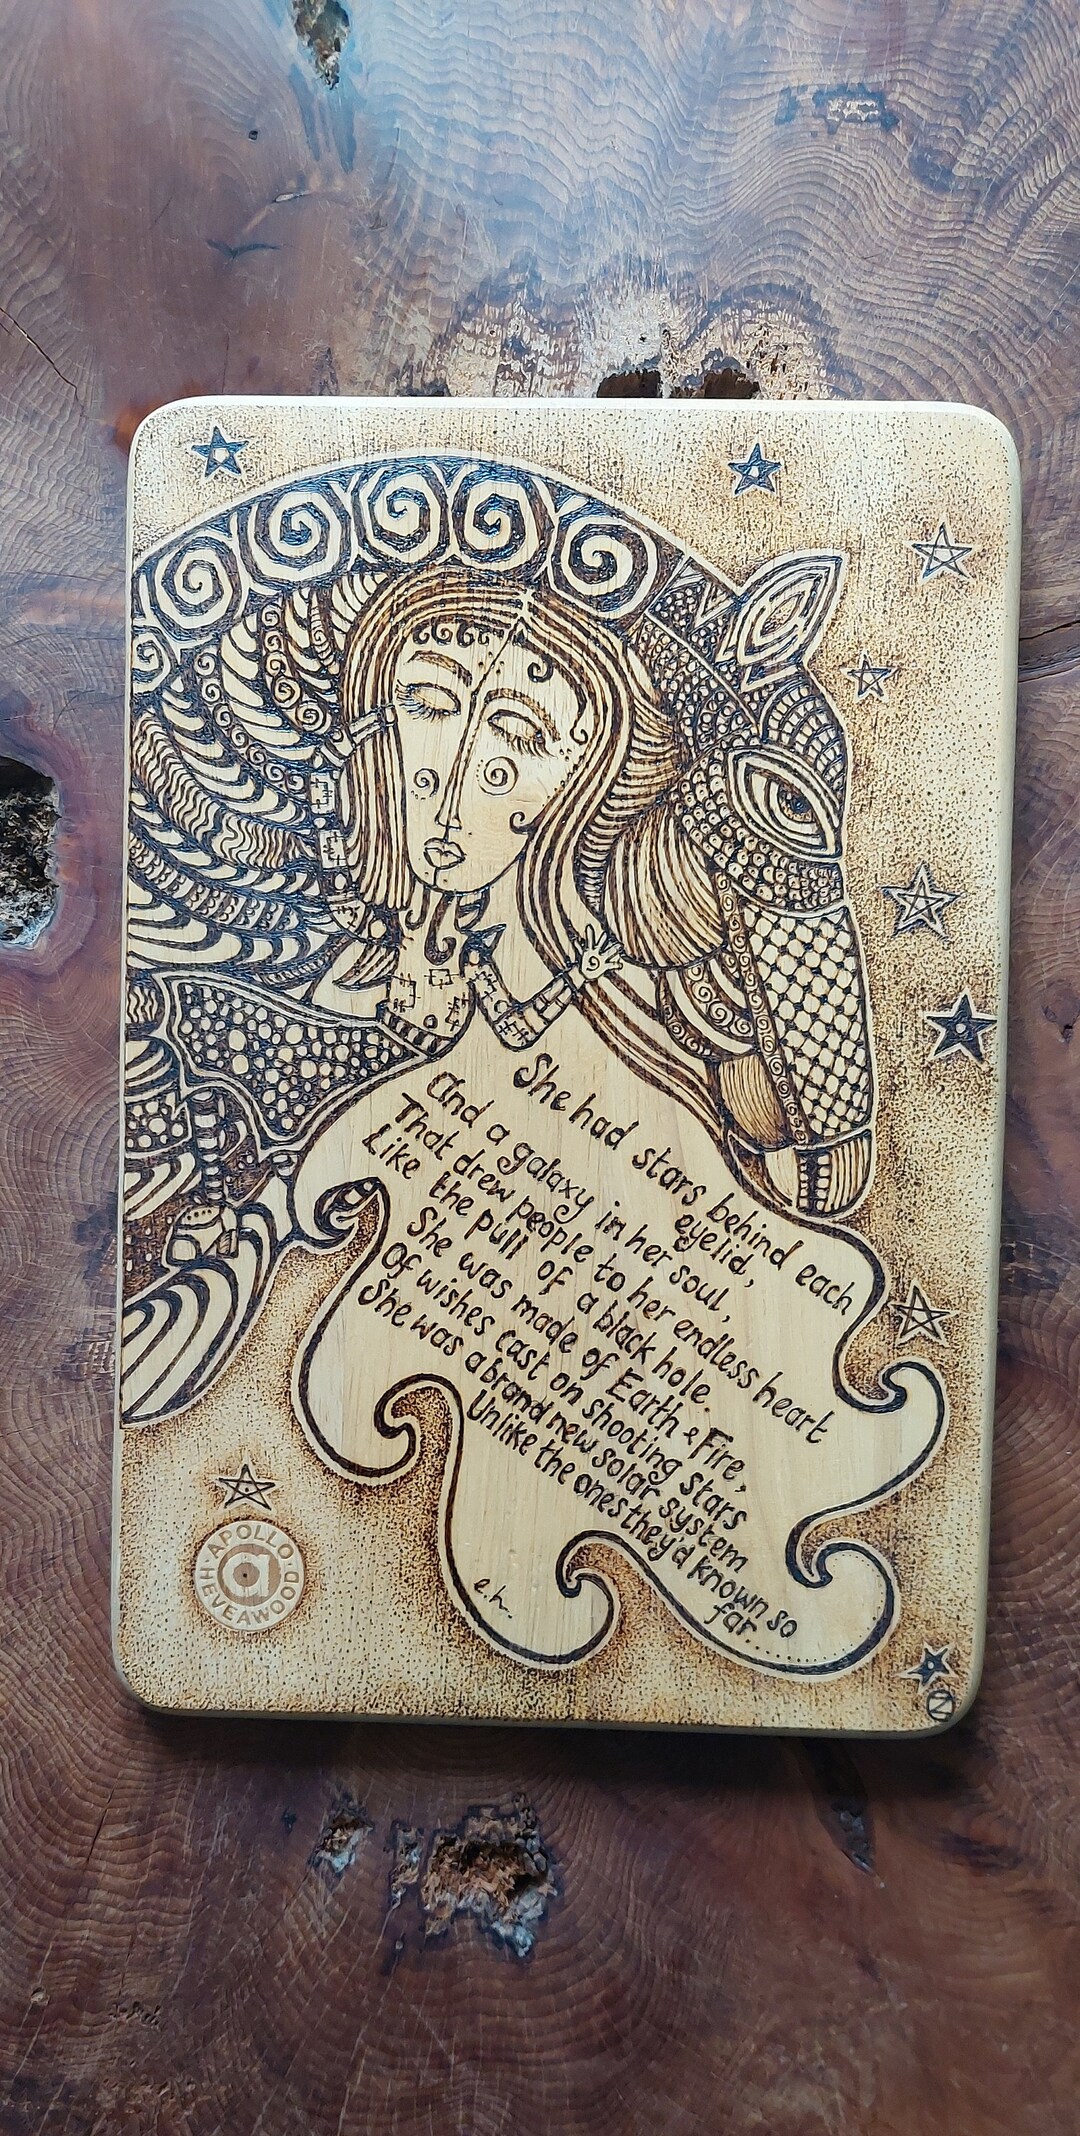 She had stars behind each
eyelid,
And a galaxy in her soul,
That drew people to her endless heart
Like the pull of a black hole.
She was made of Earth & Fire,
Of wishes cast on shooting stars
She was a brand new solar system
Unlike the ones they'd known so
far...
e.h.
APOLLO
a
HEVEAWOOD
N